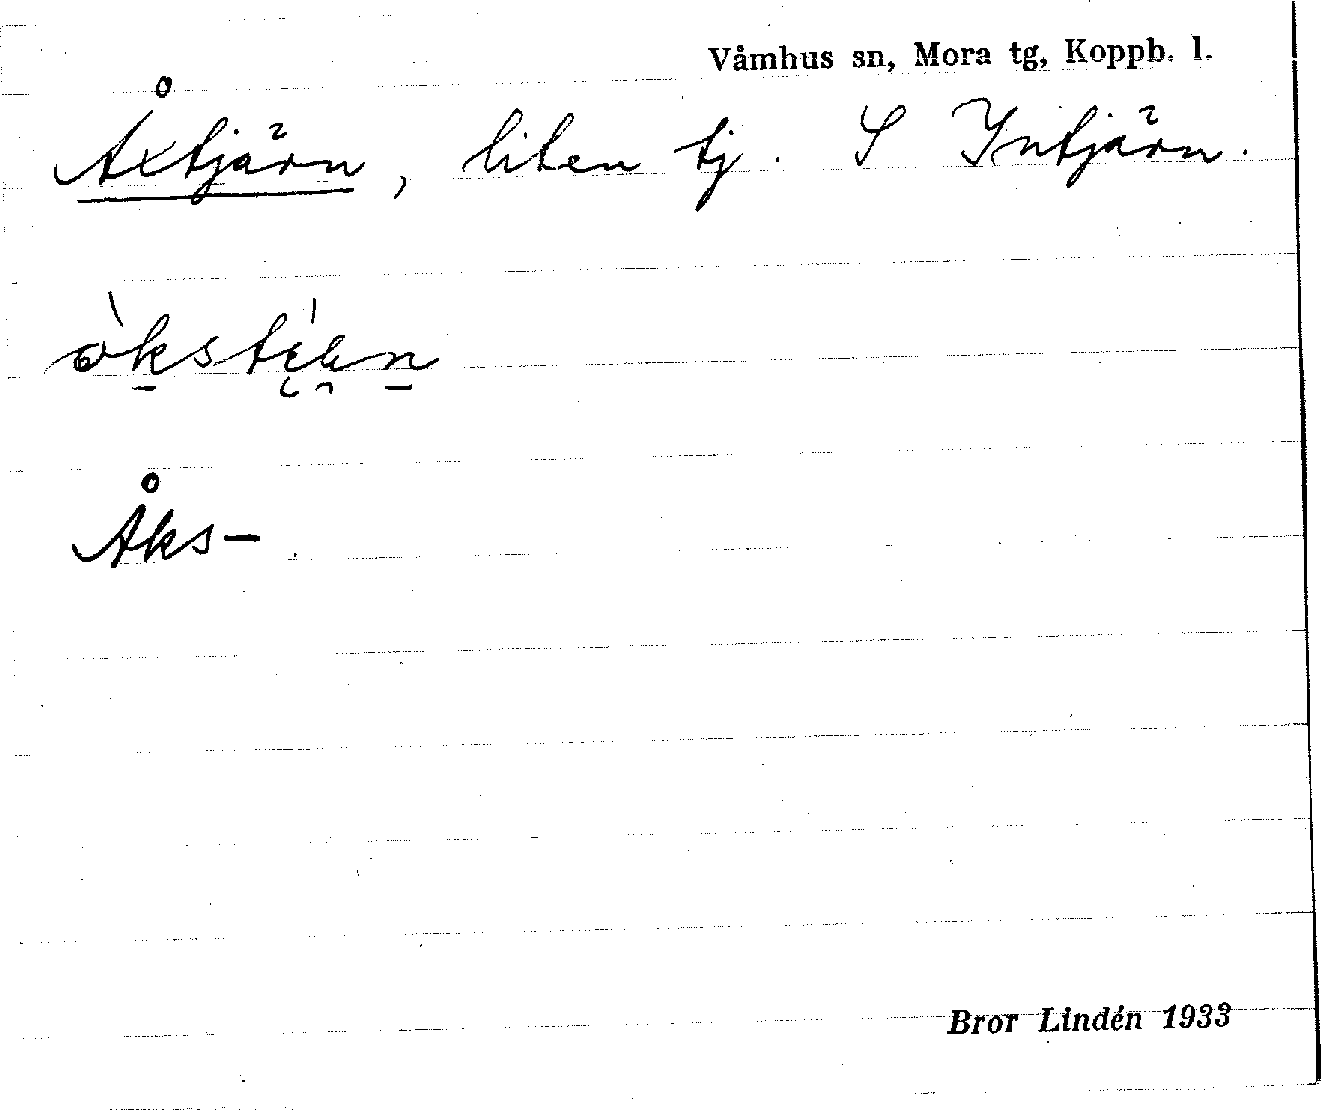 Våmhus sn, Mora tg, Koppb. l.
Åxtjärn, liten tj. S Intjärn.
Åks-
Bror Lindén 1933